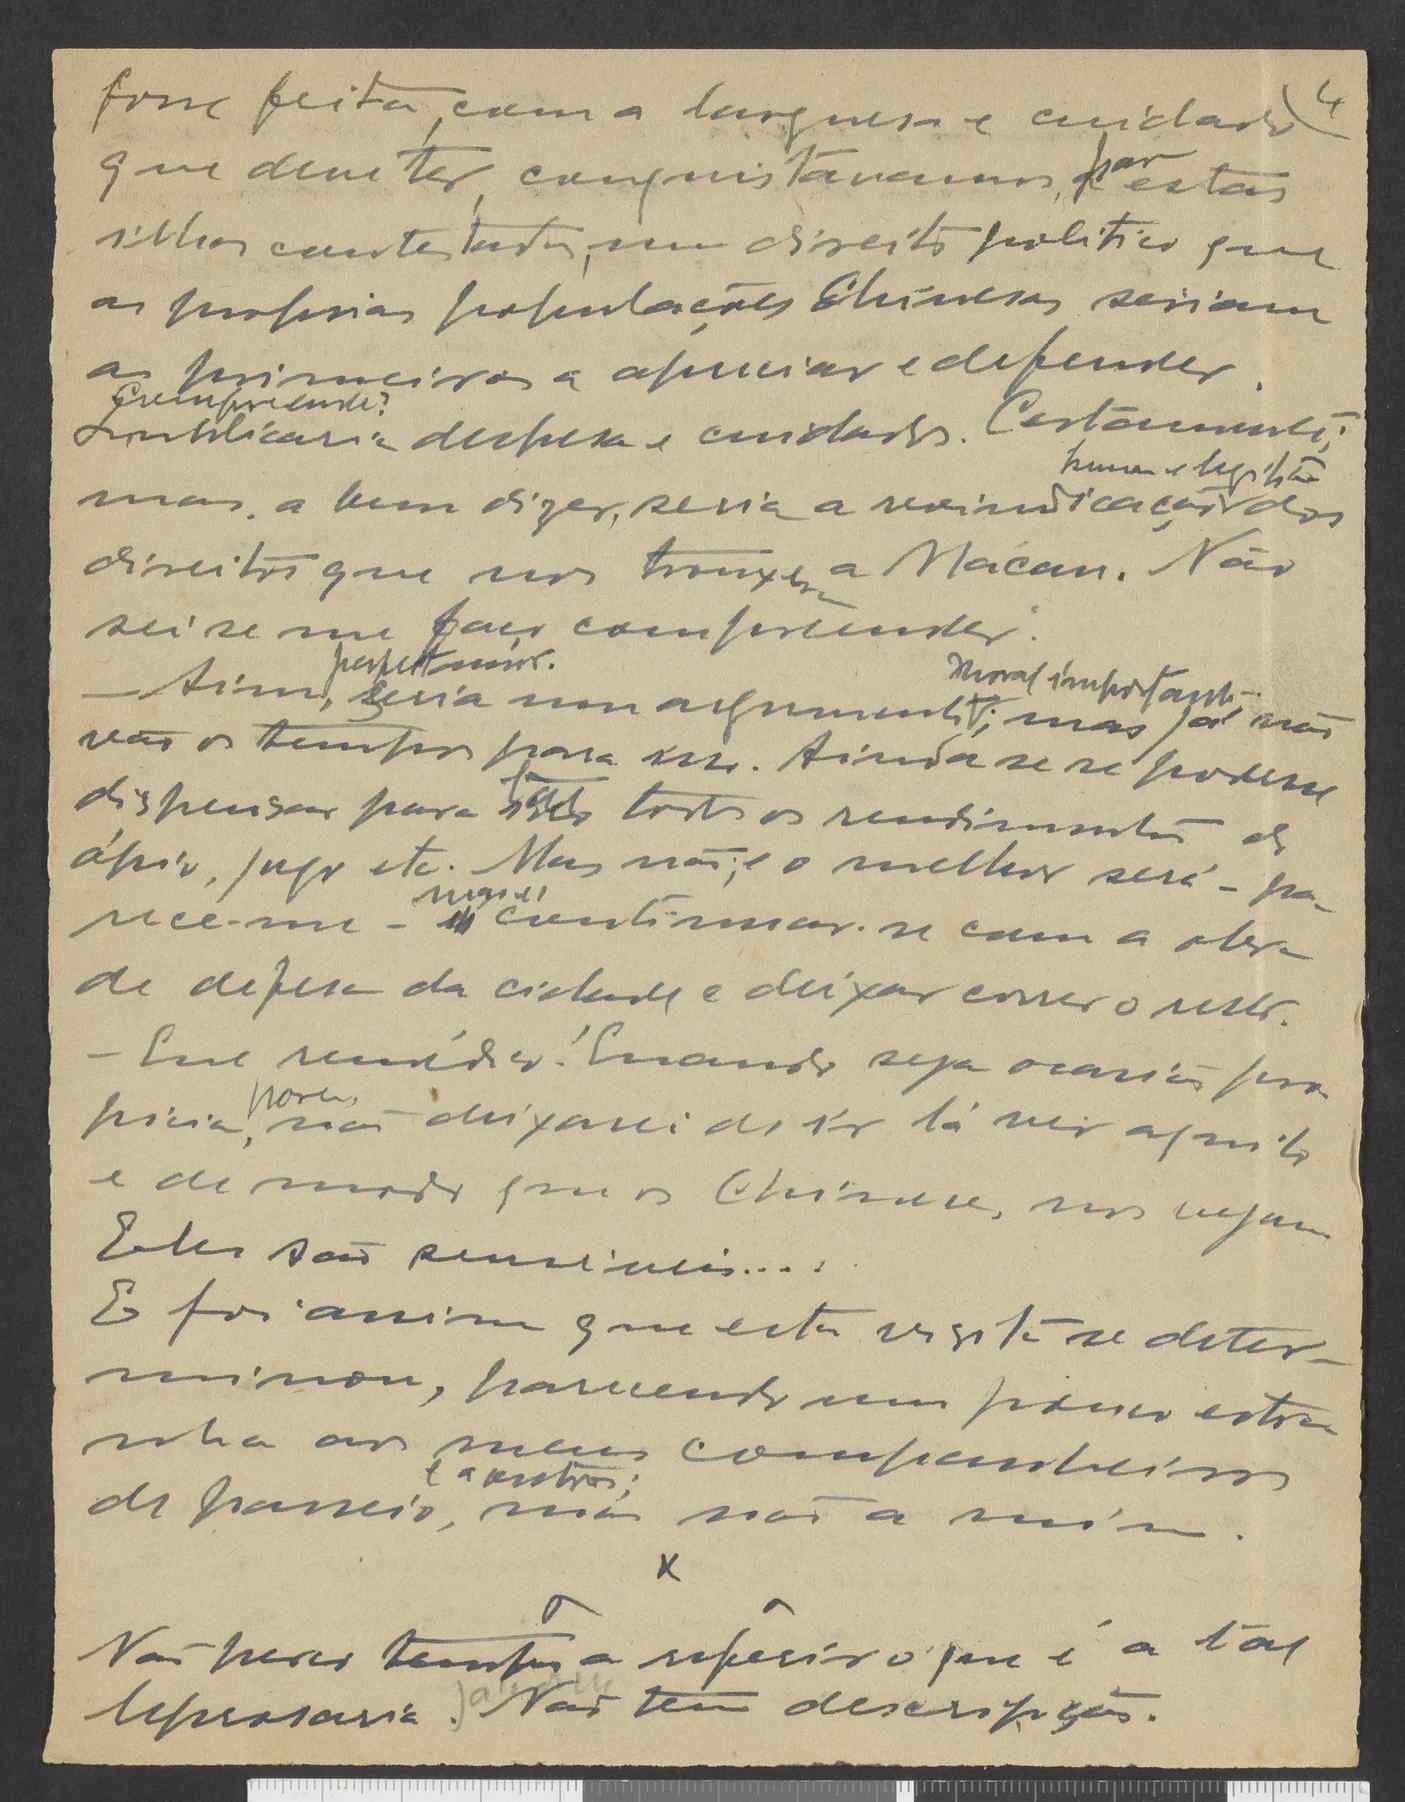 4
fosse feita, com a larguesa e cuidado
que deve ter, conquistavamos, por estas
ilhas contestadas, um direito politico que
as proprias populações Chinesas seriam
as primeiras a apreciar e defender.
Comprehende?
Implicaria despesa e cuidados. Certamente;
humana e legitima
mas, a bem dizer, seria a reivindicação dos
direitos que nos trouxera a Macau. Não
sei se me faço comprehender.
perfeitamente.
— Sim, seria um argumento moral importante;
mas já não
vão os tempos para isso. Ainda se se podesse
dispensar para isto todos os rendimentos do
ópio, jogo etc. Mas não; e o melhor será - pa-
rece-me - continuar-se com a obra
de defesa da cidade e deixar correr o resto.
— Que remédio! Quando seja ocasião pro-
picia, porem, não deixarei de ir lá ver aquilo
e de modo que os Chineses nos vejam
Eles são sensiveis....
E foi assim que esta visita se deter-
minou, parecendo um pouco estra-
nha aos meus companheiros
e a outros;
de passeio, mas não a mim.
x
Não perco tempo a referir o que é a tal
leprosaria. Não tem descripção.